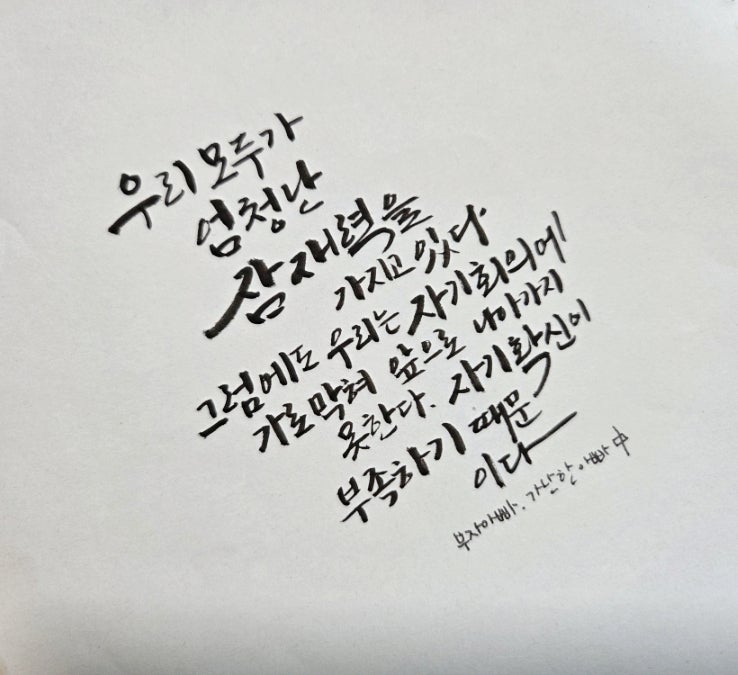 우리 모두가
엄청난
잠재력을
가지고 있다.
그럼에도 우리는 자기회의에
가로막혀 앞으로 나아가지
못한다. 자기확신이
부족하기 때문
이다
부자아빠. 가난한 아빠 中